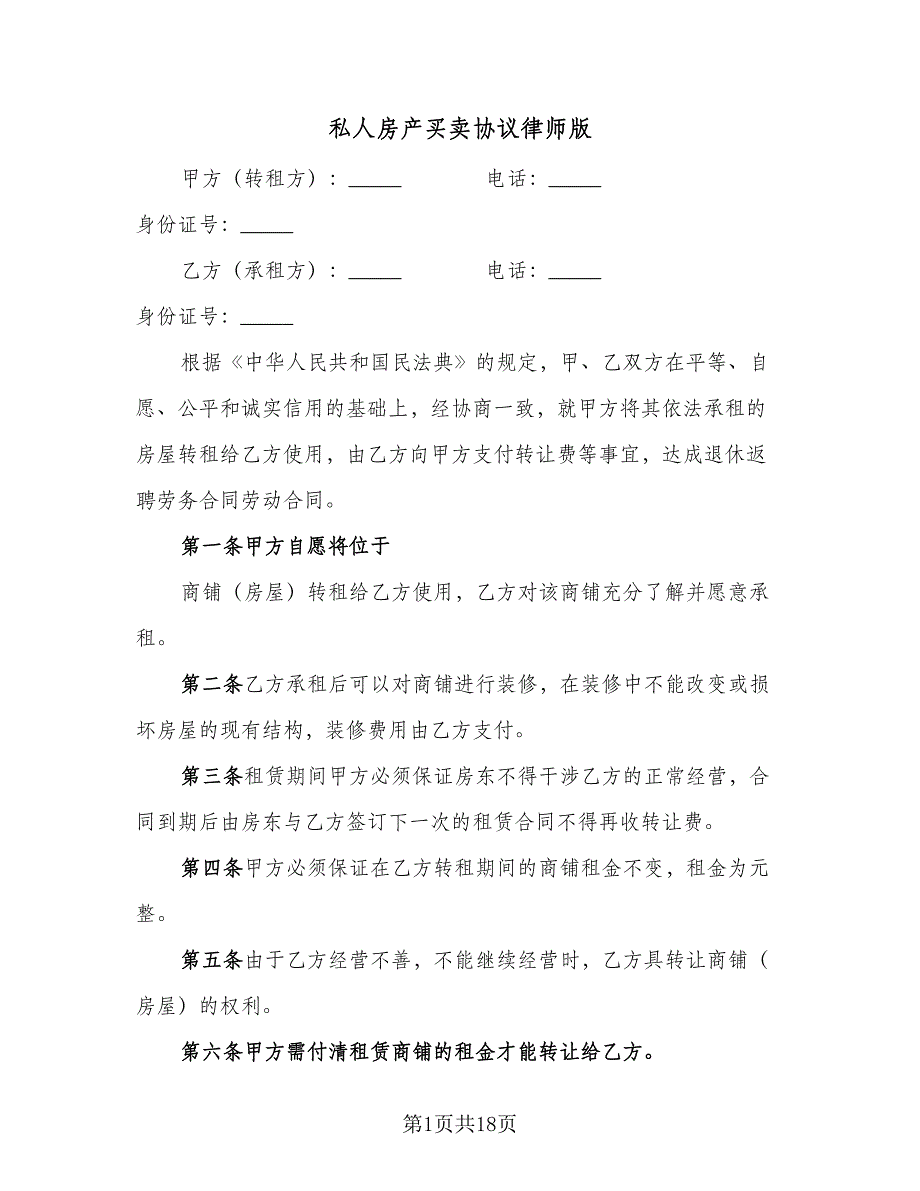 私人房产买卖协议律师版
甲方（转租方）：_____ 电话：_____
身份证号：_____
乙方（承租方）：_____ 电话：_____
身份证号：_____
根据《中华人民共和国民法典》的规定，甲、乙双方在平等、自
愿、公平和诚实信用的基础上，经协商一致，就甲方将其依法承租的
房屋转租给乙方使用，由乙方向甲方支付转让费等事宜，达成退休返
聘劳务合同劳动合同。
第一条甲方自愿将位于
商铺（房屋）转租给乙方使用，乙方对该商铺充分了解并愿意承
租。
第二条乙方承租后可以对商铺进行装修，在装修中不能改变或损
坏房屋的现有结构，装修费用由乙方支付。
第三条租赁期间甲方必须保证房东不得干涉乙方的正常经营，合
同到期后由房东与乙方签订下一次的租赁合同不得再收转让费。
第四条甲方必须保证在乙方转租期间的商铺租金不变，租金为元
整。
第五条由于乙方经营不善，不能继续经营时，乙方具转让商铺（
房屋）的权利。
第六条甲方需付清租赁商铺的租金才能转让给乙方。
第1页共18页